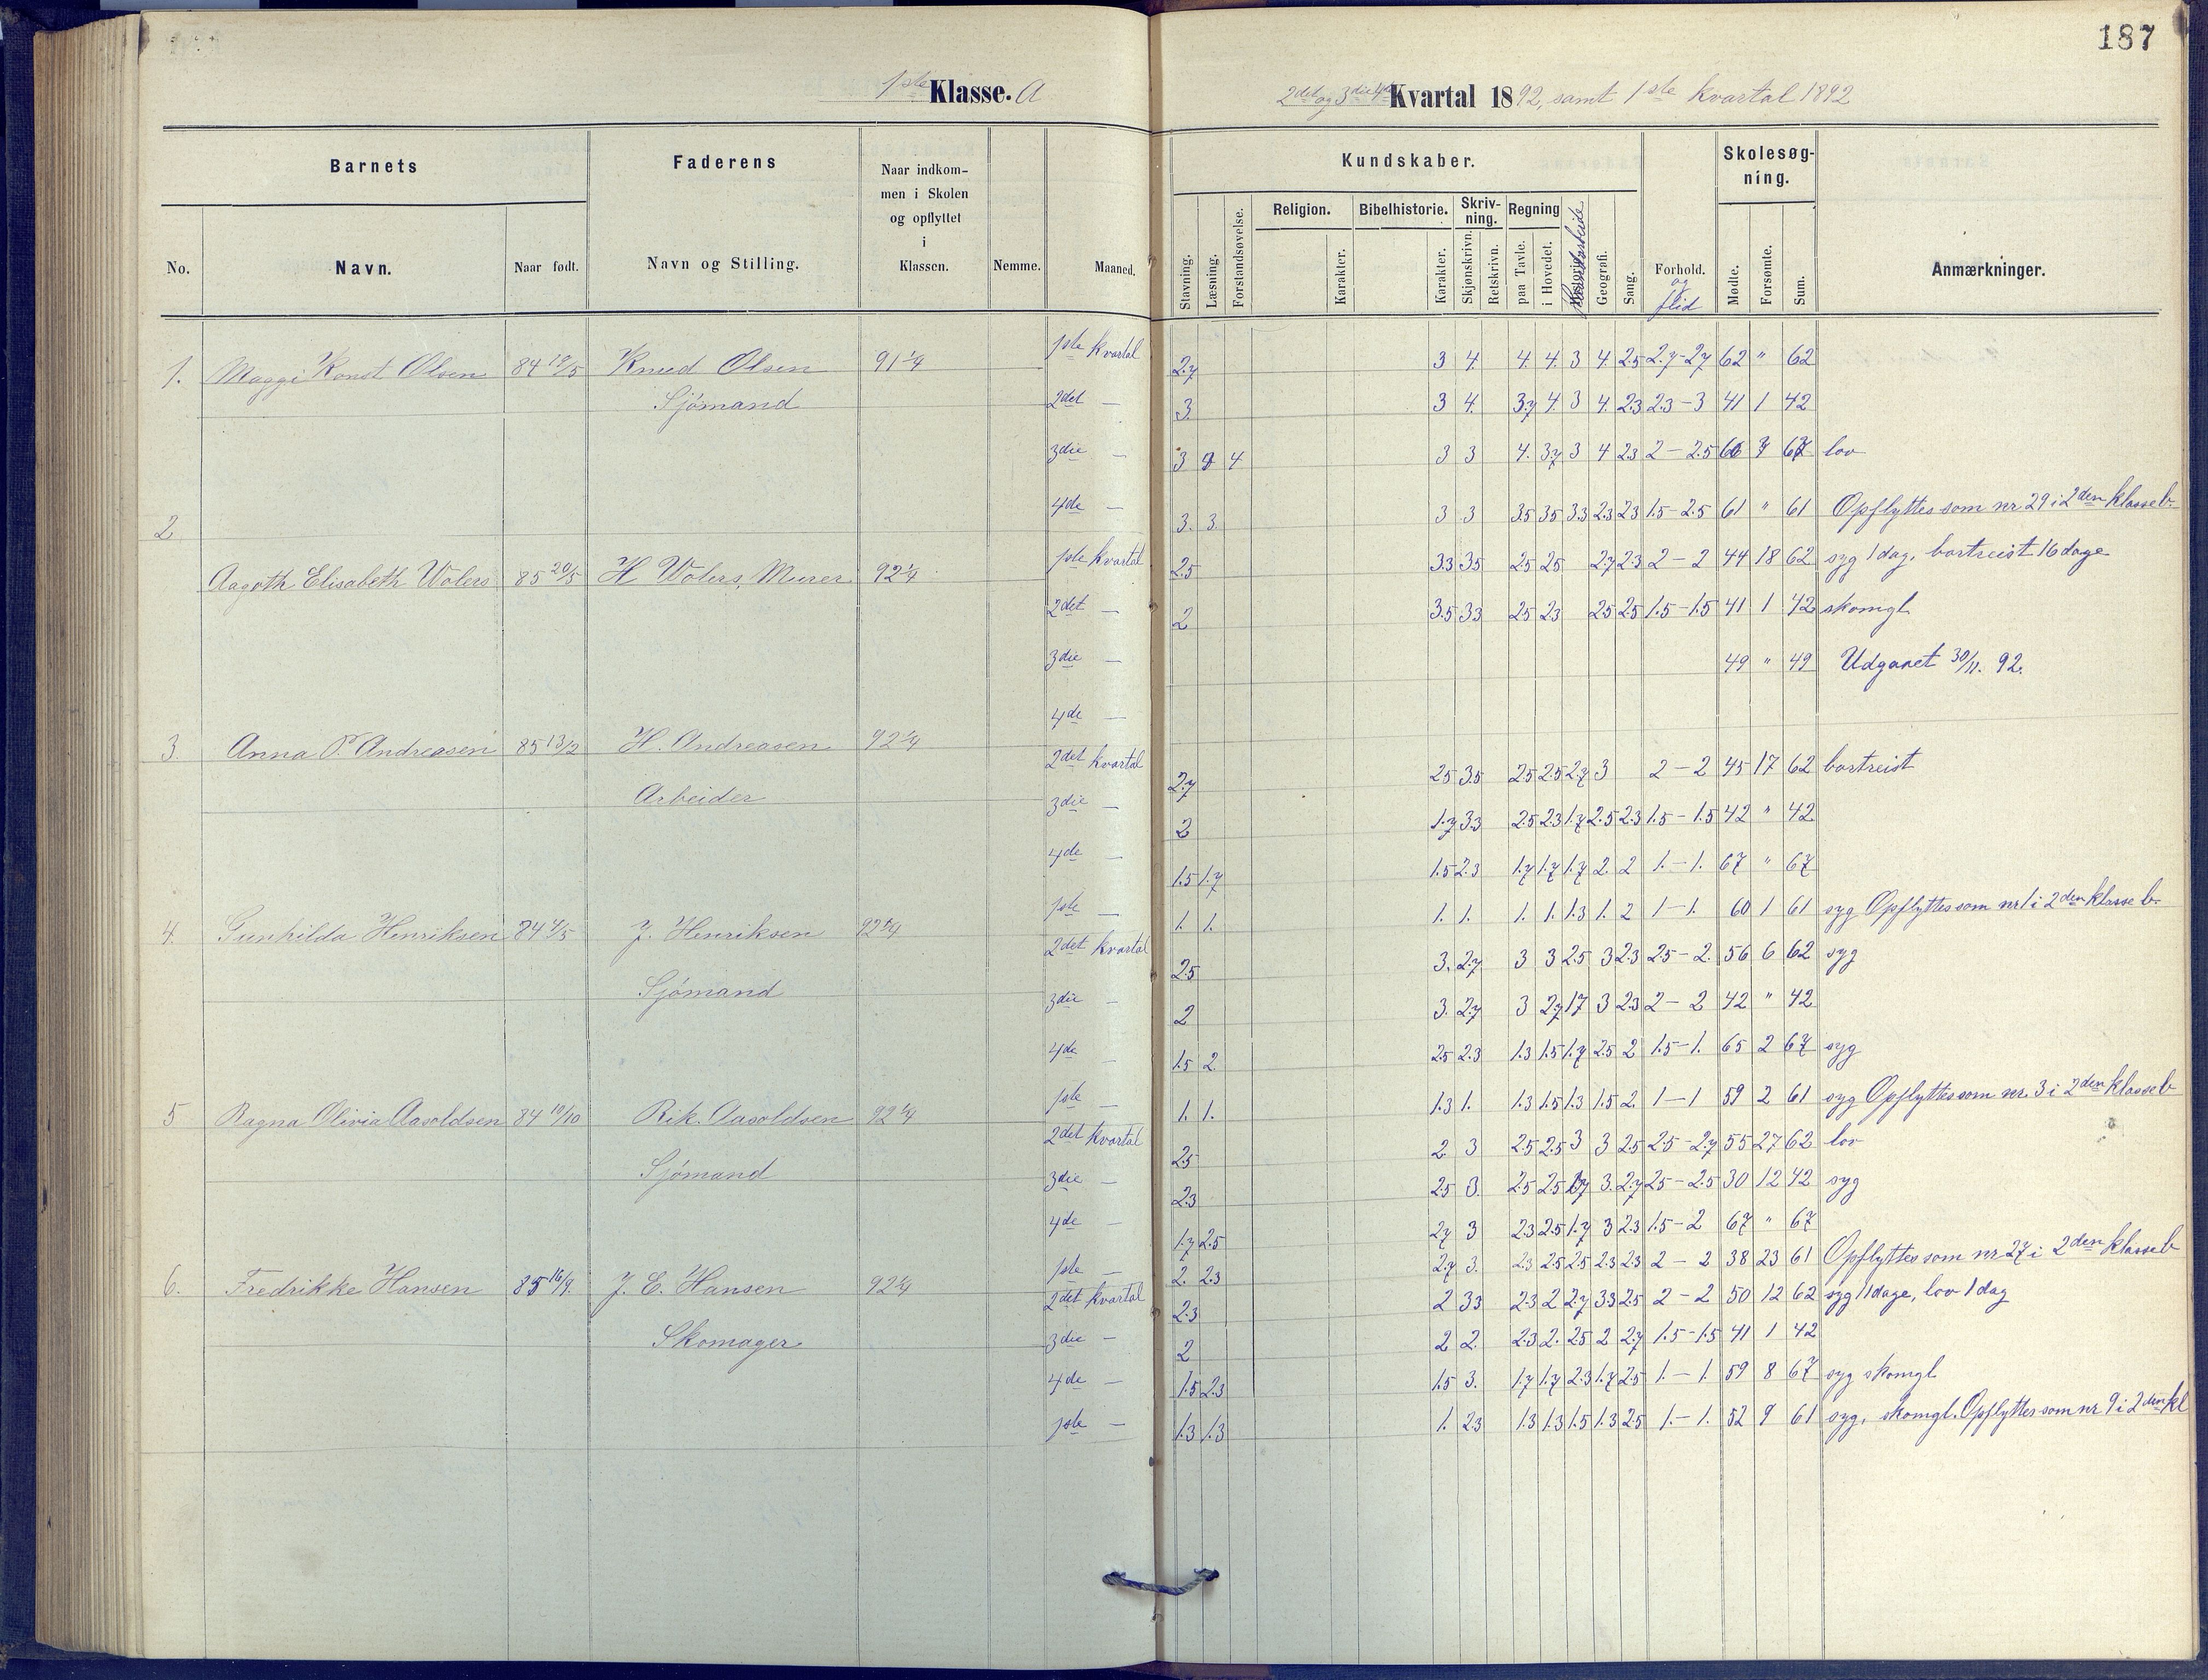 187
1ste Klasse. A
2det og 3die 4de Kvartal 1892, samt 1ste kvartal 1892
Barnets
Faderens
Naar indkom-
men i Skolen
og opflyttet
i
Klassen.
No.
Navn.
Naar født.
Navn og Stilling.
Nemme.
Maaned.
Kundskaber.
Skolesøg-
ning.
Religion.
Bibelhistorie.
Skriv-
ning.
Regning
Stavning.
Læsning.
Forstandsøvelse.
Karakter.
Karakter.
Skjønskrivn.
Retskrivn.
paa Tavle.
i Hovedet.
Haandarbeide
Geografi.
Sang.
Forhold.
og
flid
Mødte.
Forsømte.
Sum.
Anmærkninger.
1. Maggi Konst Olsen 84 19/5 Knud Olsen 91 1/4 1ste kvartal 2.7 3 4. 4. 4. 3 4. 2.5 2.7-2.7 62 " 62
Sjömand 2det — 3. 3 4. 3.7 4. 3 4. 2.3 2.3-3 41 1 42
3die — 3 4 3 3 4. 3.7 3 4 2.3 2-2.5 67 lov
2 4de — 3. 3. 3 3 3.5 3.5 3.3 2.3 2.3 1.5-2.5 61 " 61 Opflyttes som nr 29 i 2den klasse b.
Aagoth Elisabeth Wölers 85 20/5 H Wölers, Murer 92 1/4 1ste kvartal 2.5 3.3 3.5 2.5 2.5 2.7 2.3 2-2 44 18 62 syg 1 dag, bortreist 16 dage
2det — 2 3.5 3.3 2.5 2.3 2.5 2.5 1.5-1.5 41 1 42 skomgl
3die — 49 " 49 Udgaaet 30/11. 92.
4de —
3. Anna P. Andreasen 85 13/2 H. Andreasen 92 1/4 2det kvartal 2.7 2.5 3.5 2.5 2.5 2.7 3 2-2 45 17 62 bortreist
Arbeider 3die — 2 1.7 3.3 2.5 2.3 1.7 2.5 2.3 1.5-1.5 42 " 42
4de — 1.5 1.7 1.5 2.3 1.7 1.7 1.7 2. 2 1.-1. 67 " 67
1ste — 1. 1. 1. 1. 1. 1. 1.3 1. 2 1-1. 60 1 61 syg Opflyttes som nr 1 i 2den klasse b.
4. Gunhilda Henriksen 84 4/5 J. Henriksen 92 1/4 2det kvartal 2.5 3. 2.7 3 3 2.5 3 2.3 2.5-2. 56 6 62 syg
Sjömand 3die — 2 3. 2.7 3 2.7 1.7 3 2.3 2-2 42 " 42
4de — 1.5 2 2.5 2.3 1.3 1.5 1.7 2.5 2 1.5-1. 65 2 67 syg
1ste — 1. 1. 1.3 1. 1.3 1.5 1.3 1.5 2 1-1 59 2 61 syg Opflyttes som nr. 3 i 2den klasse b
5 Ragna Olivia Aasoldsen 84 19/10 Rik. Aasoldsen 92 1/4 2det kvartal 2.5 2 3 2.5 2.5 3 3 2.5 2.5-2.7 55 27 62 lov
Sjömand 3die — 2.3 2.5 3. 2.5 2.5 3. 2.7 2.5-2.5 30 12 42 syg
4de — 1.7 2.5 2.7 3 2.3 2.5 1.7 3 2.3 1.5-2 67 " 67
1ste — 2. 2.3 2.7 3. 2.3 2.5 2.5 2.3 2.3 2-2 38 23 61 Opflyttes som nr 27 i 2den klasse b
6. Fredrikke Hansen 85 16/9. J. E. Hansen 92 1/4 2det kvartal 2.3 2 3.3 2.3 2 2.7 3.3 2.5 2-2 50 12 62 syg 11 dage, lov 1 dag
Skomager 3die — 2 2 2. 2.3 2. 2.5 2 2.7 1.5-1.5 41 1 42
4de — 1.5 2.3 1.5 3. 1.7 1.7 2.3 1.7 2.5 1.-1. 59 8 67 syg skomgl
1ste — 1.3 1.3 1. 2.3 1.3 1.3 1.5 1.3 2.5 1.-1. 52 9 61 syg, skomgl. Opflyttes som nr 9 i 2den kl